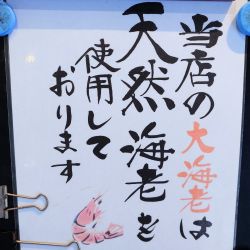 当店の大海老は
天然海老を
使用して
おります